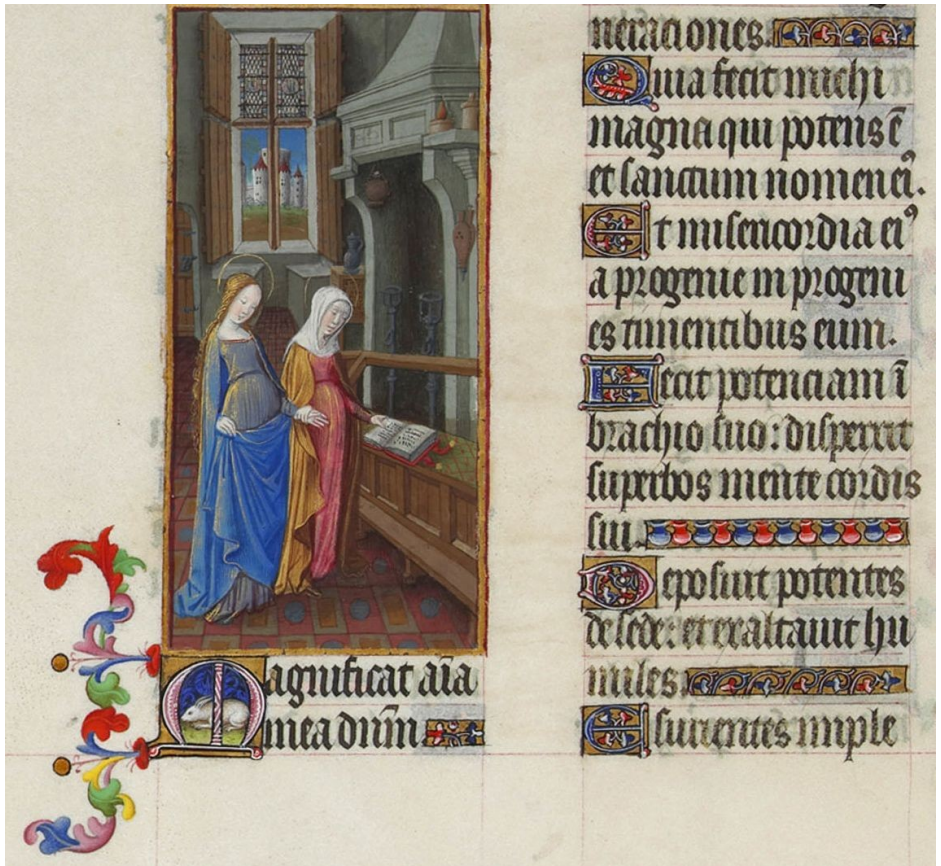 Magnificat aīa
mea dnm̄
neraciones.
Quia fecit michi
magna qui potens ē
et sanctum nomen eiꝰ.
Et misericordia eiꝰ
a progenie in progeni
es timentibus eum.
Fecit potenciam ī
brachio suo: dispersit
superbos mente cordis
sui.
Deposuit potentes
de sede: et exaltauit hu
miles
Esurientes imple